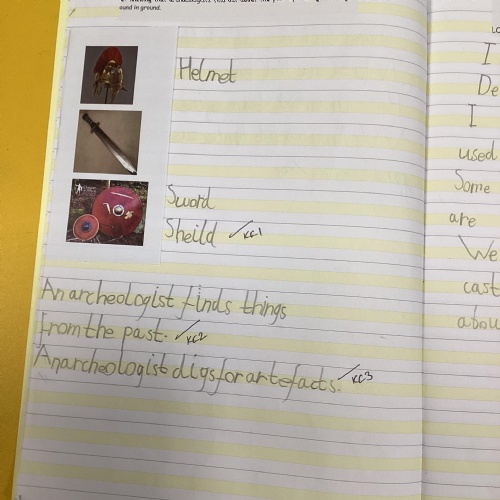 ound in ground.
Helmet
Sword
Sheild KC1
An archeologist finds things
from the past. KC2
An archeologist digs for artefacts. KC3
I
De
I
used
Some
are
We
cast
abou